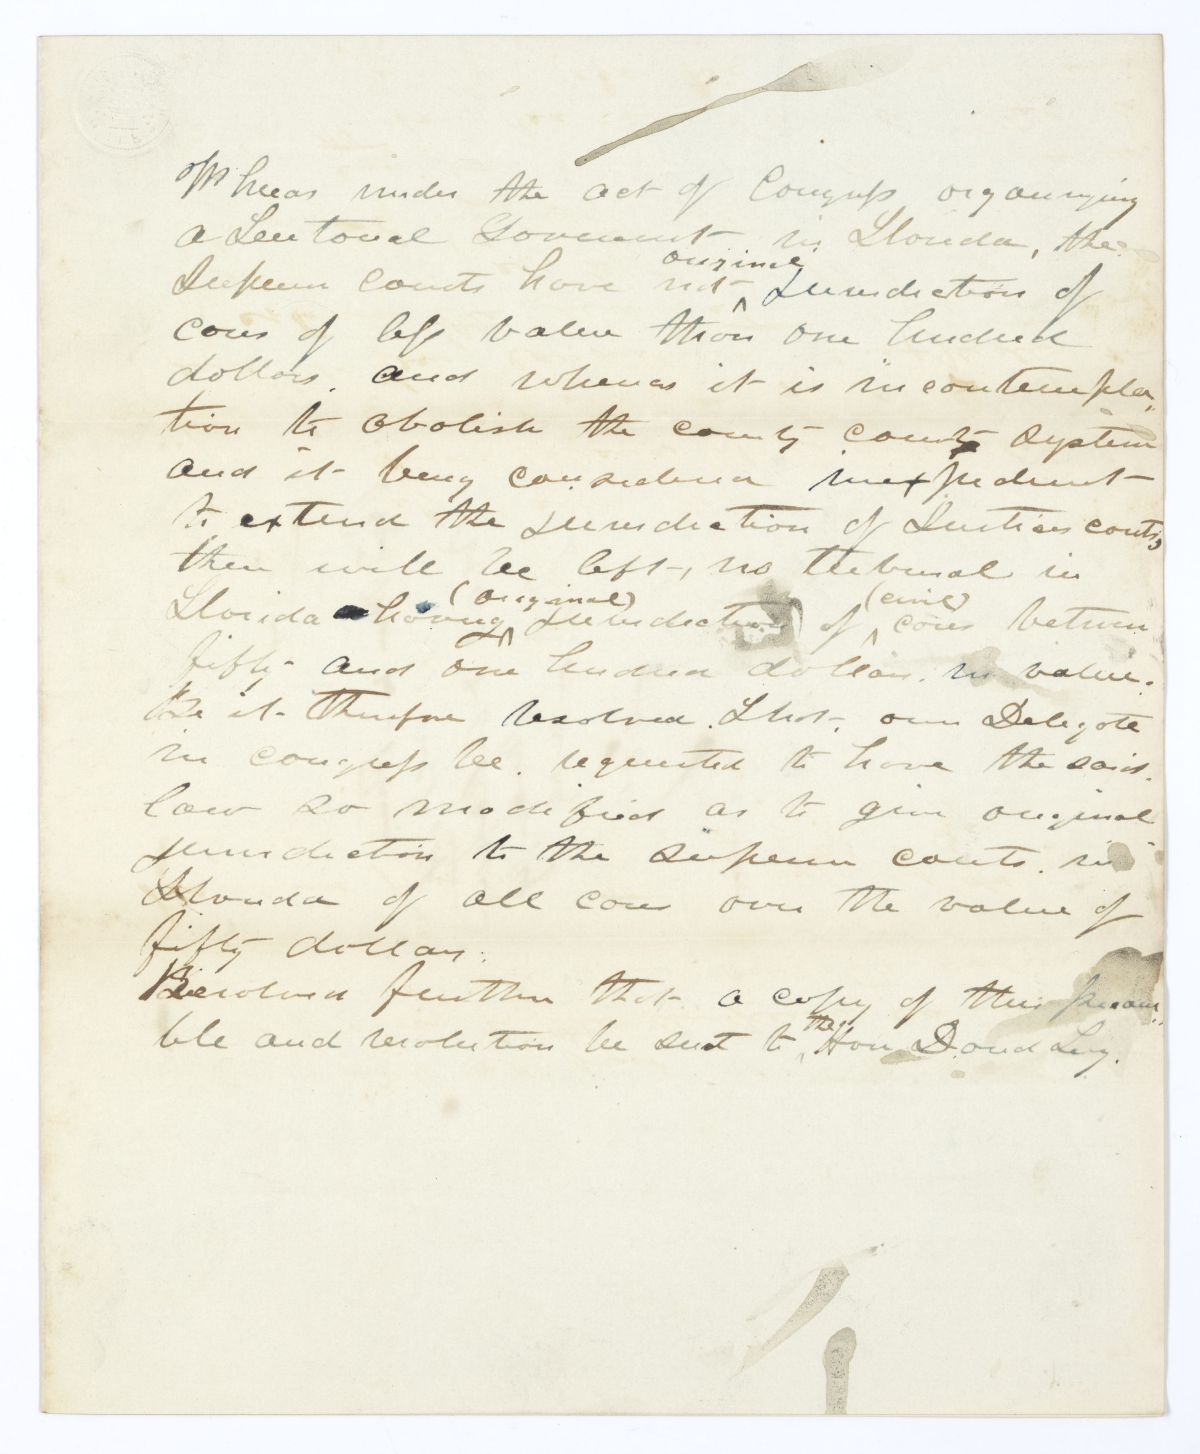 Whereas under the act of Congress organizing
a Territorial Government in Florida, the
Superior Courts have not original Jurisdiction of
cases of less value than one hundred
dollars, and whereas it is in contempla-
tion to abolish the county courts system
and it being considered inexpedient
to extend the jurisdiction of Justices courts,
there will be left, no tribunal in
Florida having (original) jurisdiction of (civil) cases between
fifty and one hundred dollars in value.
Be it therefore resolved. That our Delegate
in congress be requested to have the said
law so modified as to give original
jurisdiction to the superior courts in
Florida of all cases over the value of
fifty dollars.
Resolved further that a copy of this pream-
ble and resolution be sent to the Hon David Levy.